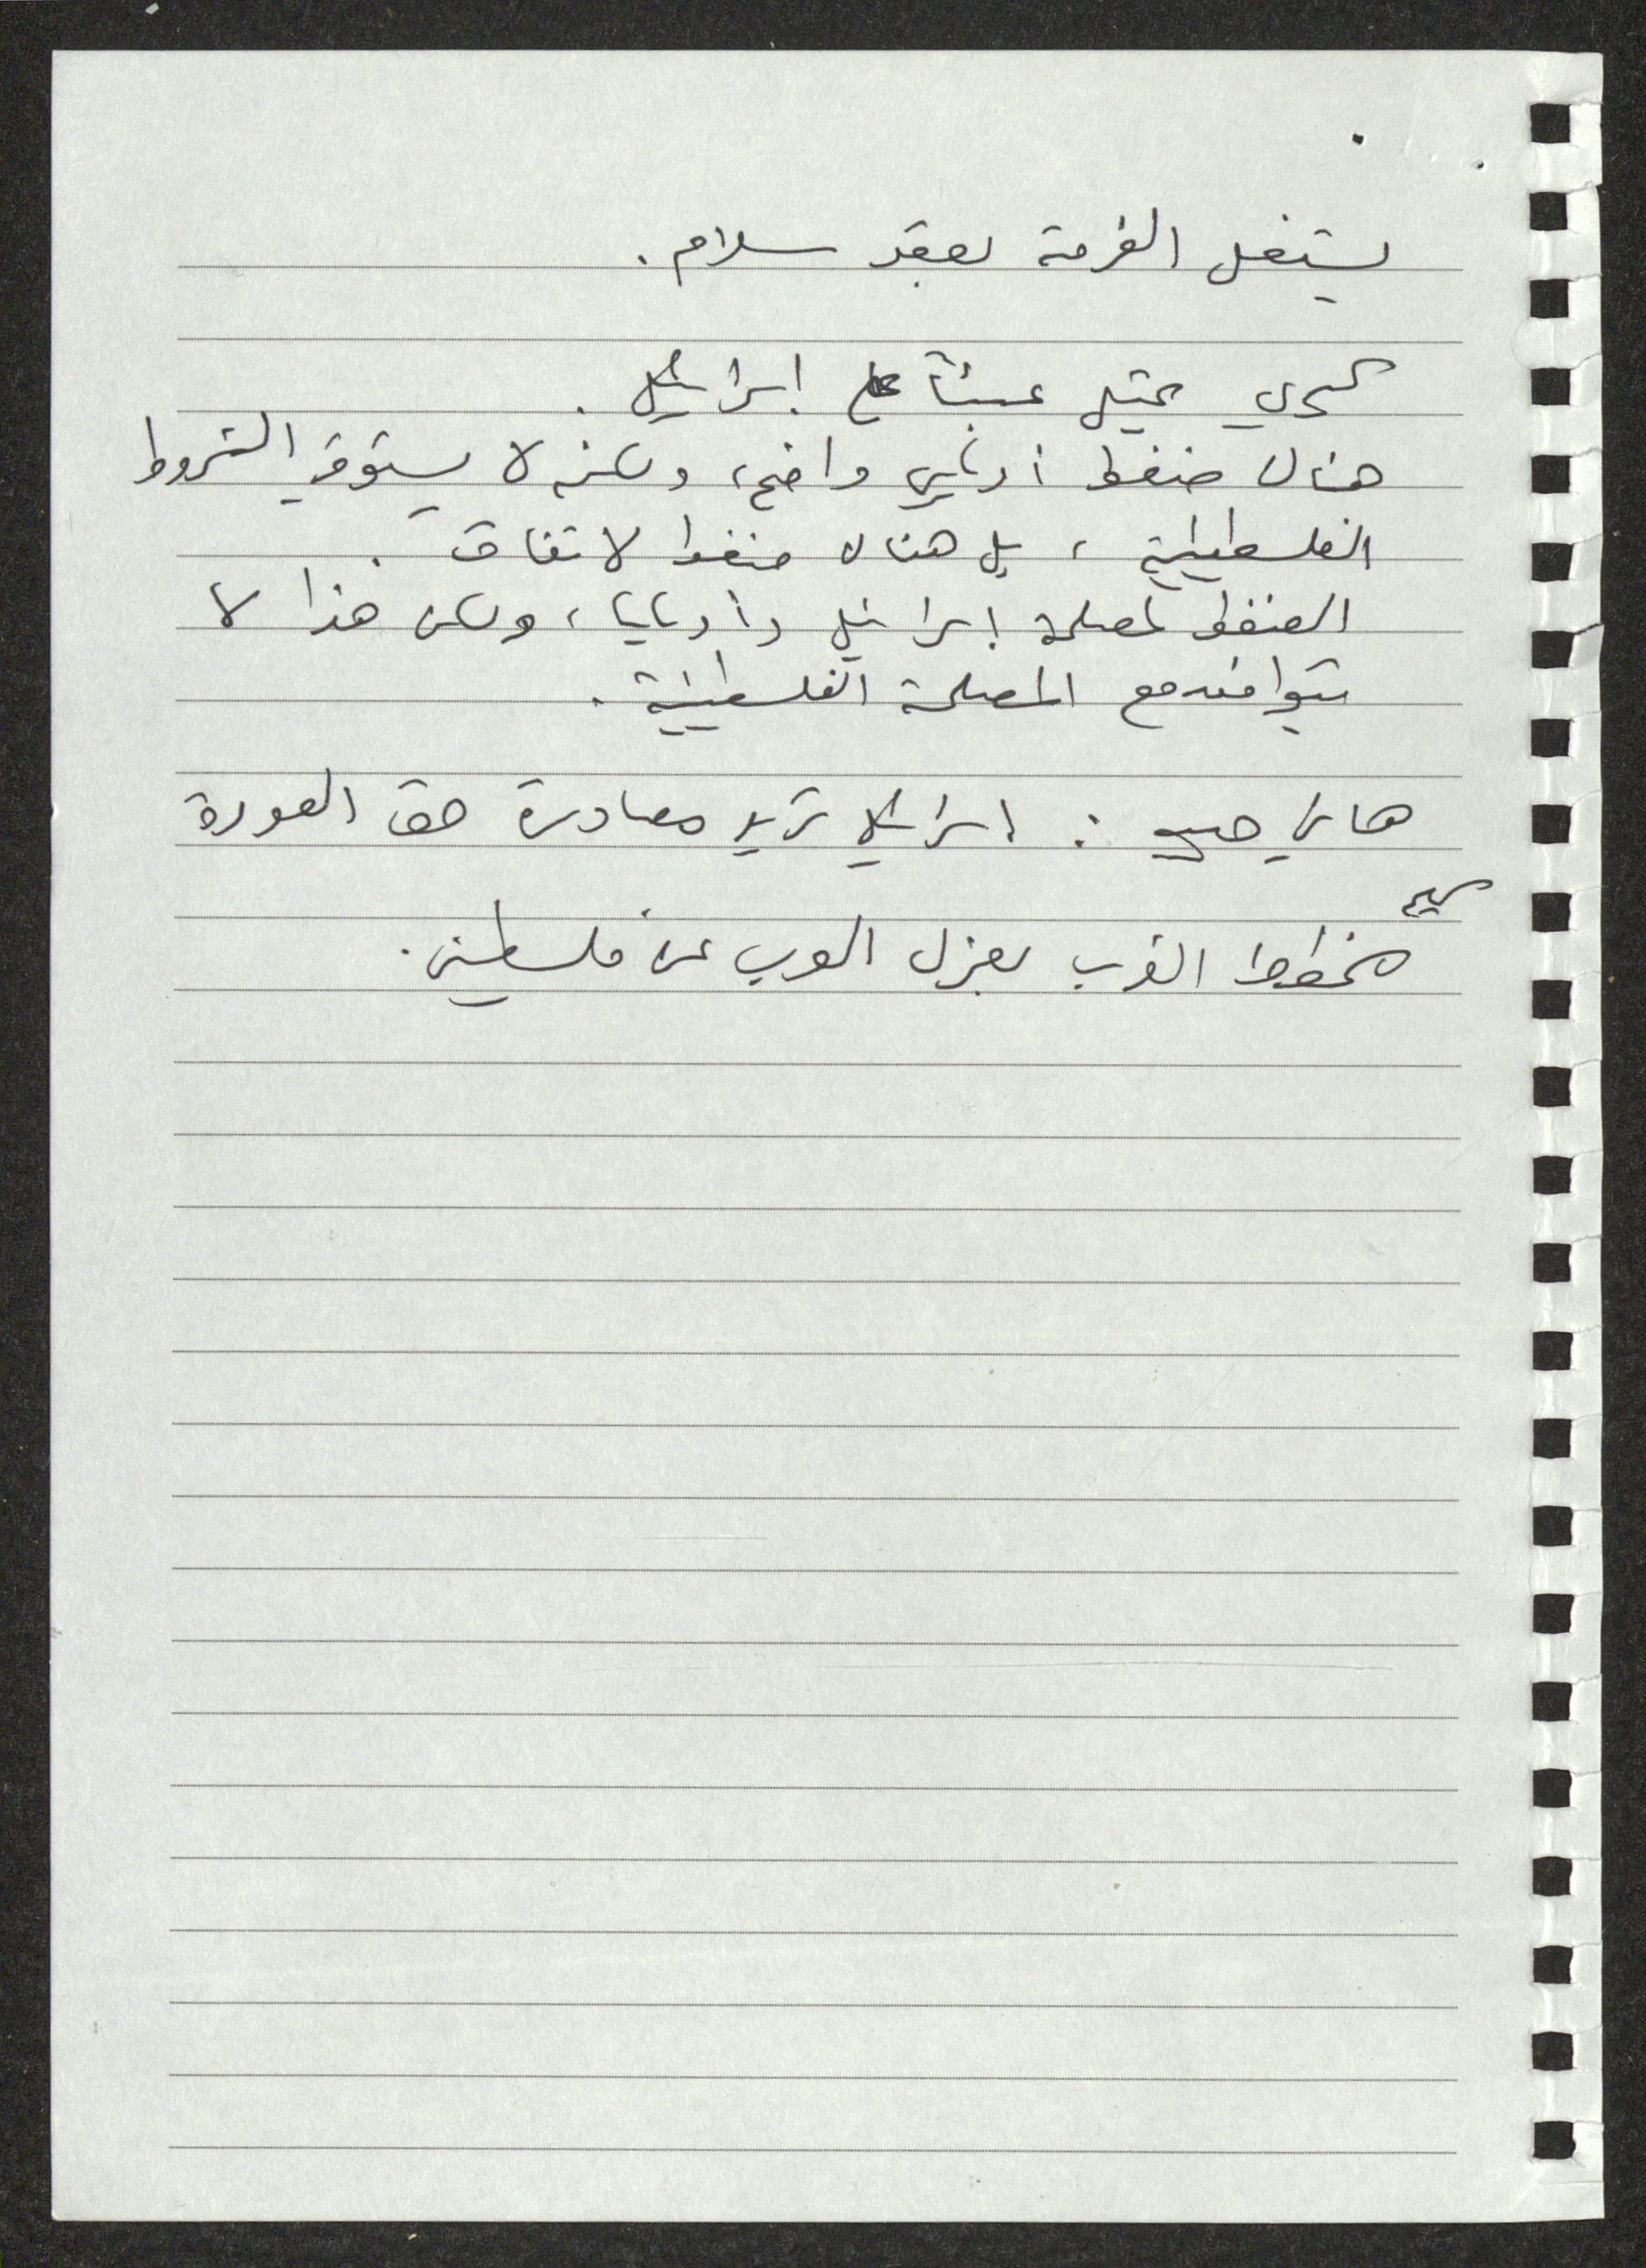 ليستغل الفرصة لعقد سلام.
يمثل عبئاً على إسرائيل.
هناك ضغط أوبامي واضح، ولكنه لا يستوفي الشروط
الفلسطينية، بل هناك ضغط لاتفاق.
الضغط لمصلحة إسرائيل وأوباما، ولكن هذا لا
يتوافق مع المصلحة الفلسطينية.
هاني : إسرائيل تريد مصادرة حق العودة
مخطط الغرب لعزل العرب عن فلسطين.